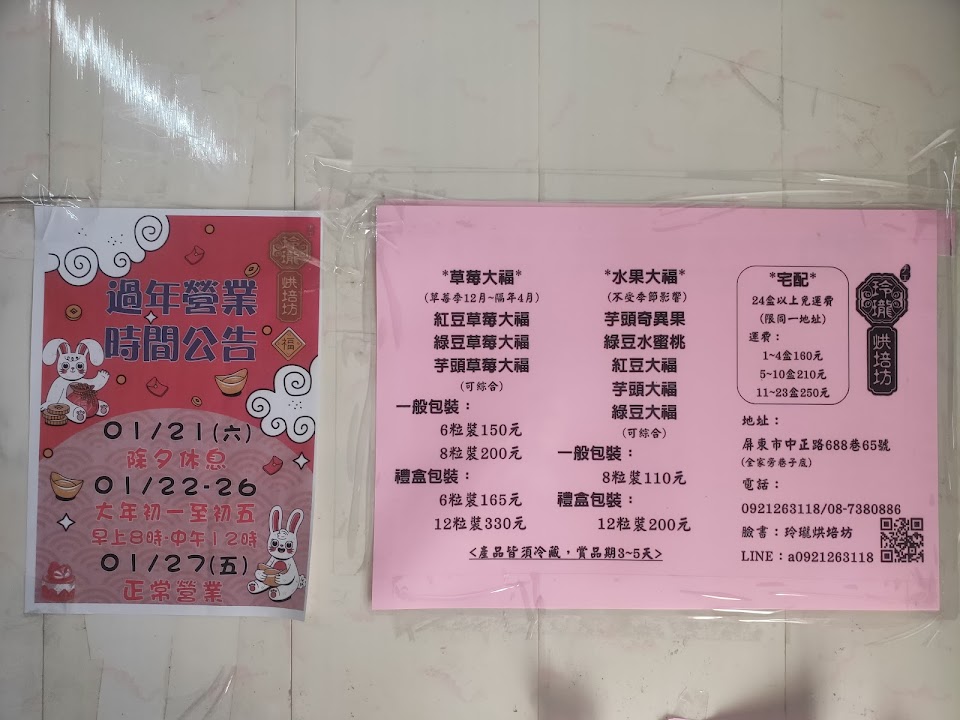 玲瓏
烘培坊
過年營業
時間公告
福
01/21(六)
除夕休息
01/22-26
大年初一至初五
早上8時-中午12時
01/27(五)
正常營業
*草莓大福*
(草莓季12月~隔年4月)
紅豆草莓大福
綠豆草莓大福
芋頭草莓大福
(可綜合)
一般包裝：
6粒裝150元
8粒裝200元
禮盒包裝：
6粒裝165元
12粒裝330元
*水果大福*
(不受季節影響)
芋頭奇異果
綠豆水蜜桃
紅豆大福
芋頭大福
綠豆大福
(可綜合)
一般包裝：
8粒裝110元
禮盒包裝：
12粒裝200元
<產品皆須冷藏，賞品期3~5天>
*宅配*
24盒以上免運費
(限同一地址)
運費：
1~4盒160元
5~10盒210元
11~23盒250元
玲瓏
烘培坊
地址：
屏東市中正路688巷65號
(全家旁巷子底)
電話：
0921263118/08-7380886
臉書：玲瓏烘培坊
LINE：a0921263118